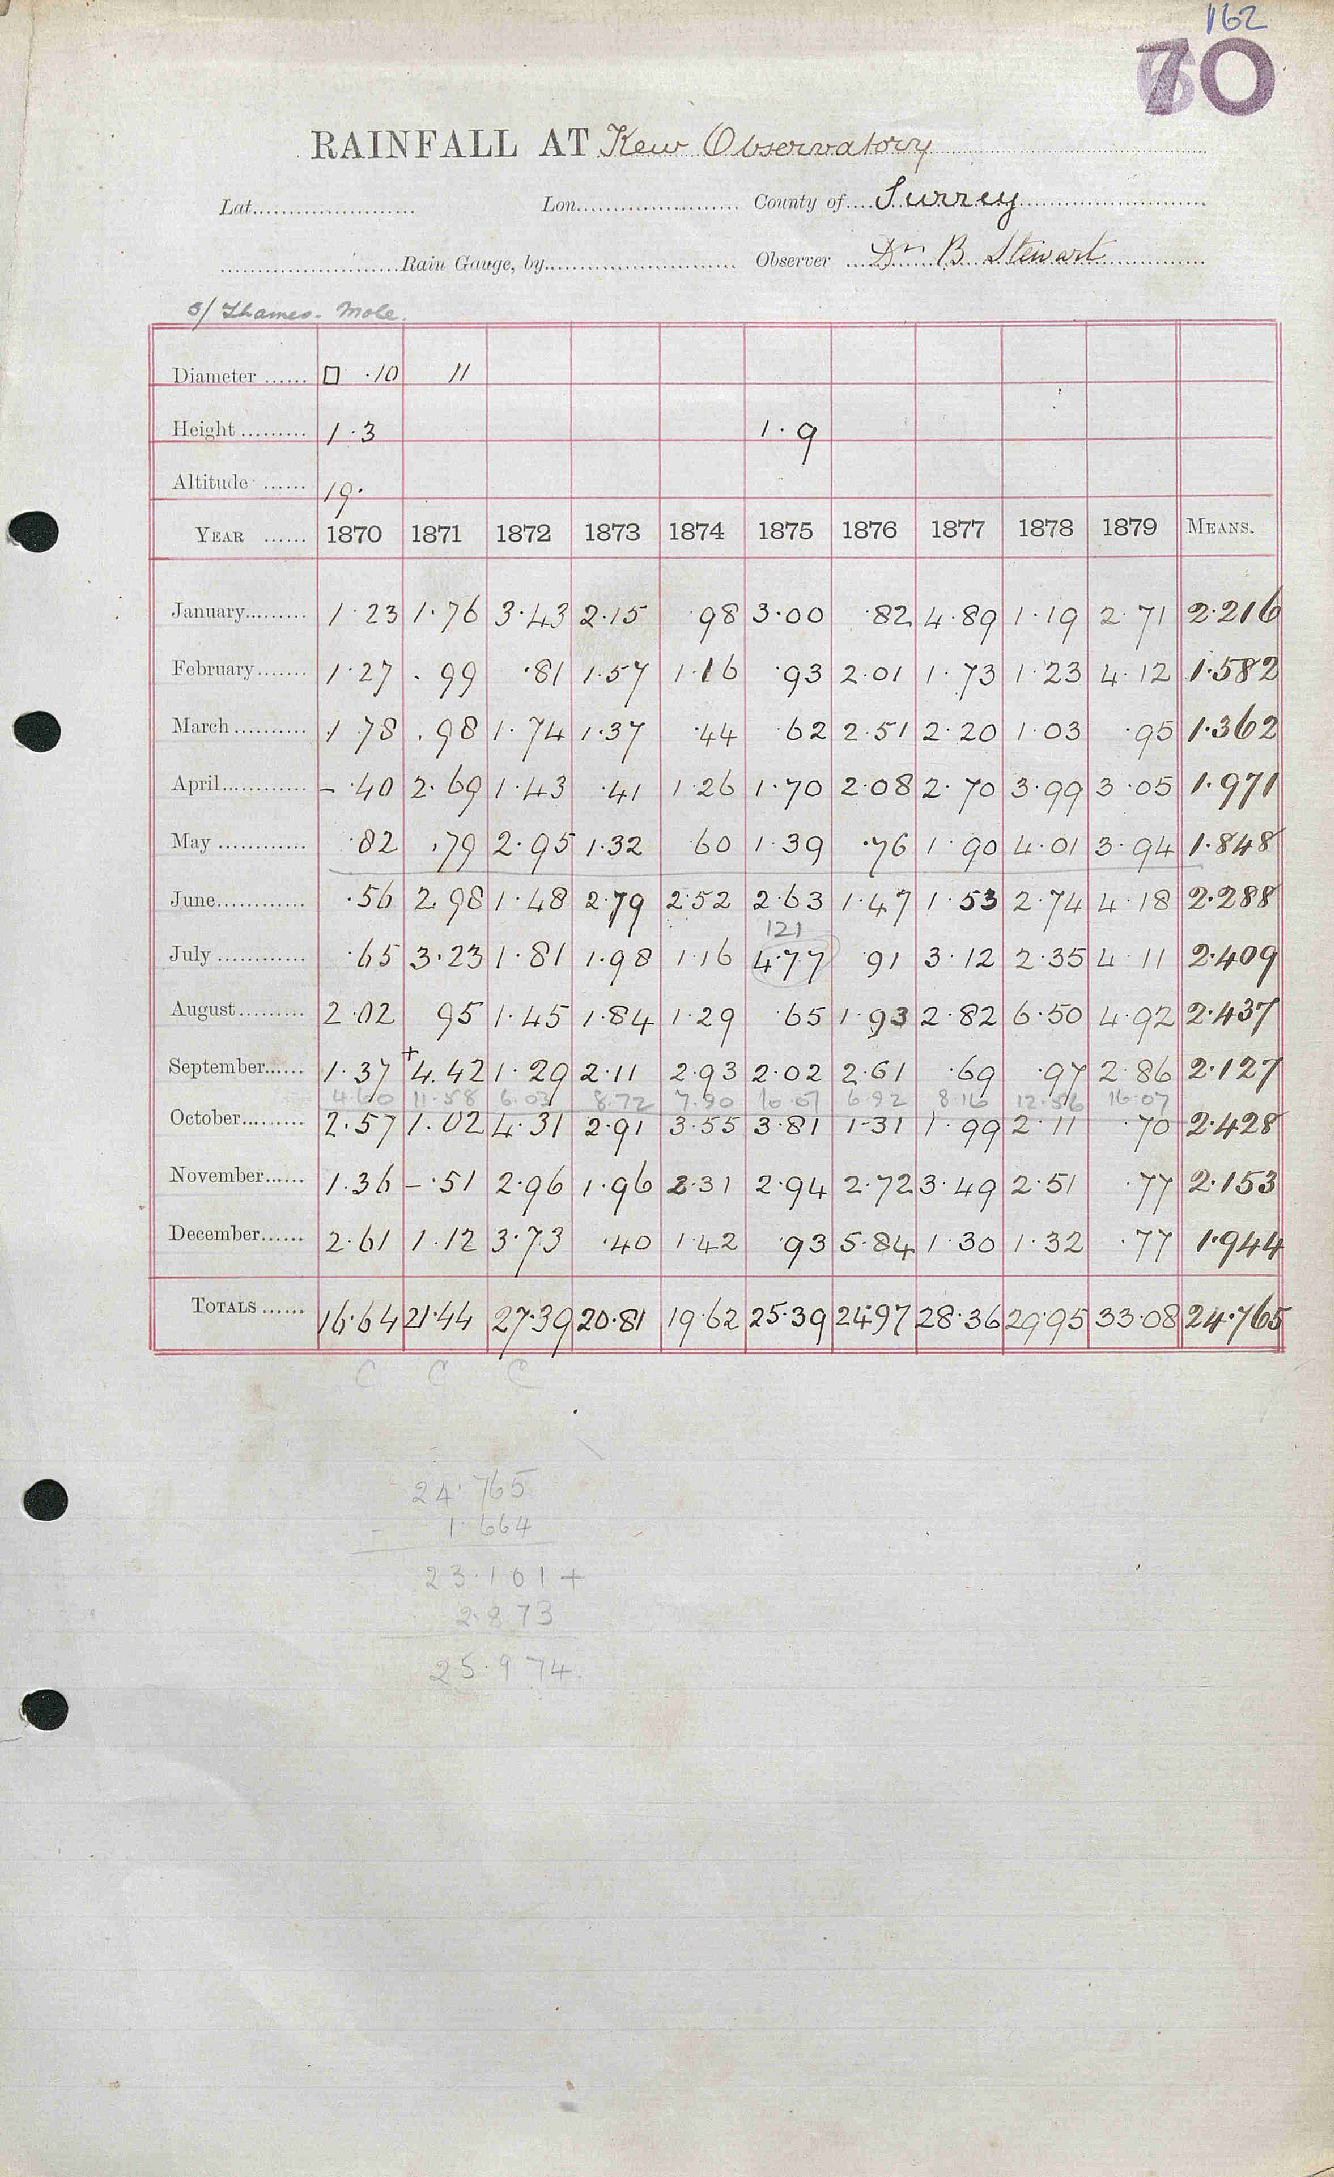 162
70
RAINFALL AT Kew Observatory
Lat. Lon. County of Surrey
Rain Gauge, by Observer Dr B. Stewart
5/ Thames - Mole.
Diameter □ ·10 11
Height 1·3 1·9
Altitude 19·
YEAR 1870 1871 1872 1873 1874 1875 1876 1877 1878 1879 MEANS.
January 1·23 1·76 3·43 2·15 ·98 3·00 ·82 4·89 1·19 2·71 2·216
February 1·27 ·99 ·81 1·57 1·16 ·93 2·01 1·73 1·23 4·12 1·582
March 1·78 ·98 1·74 1·37 ·44 ·62 2·51 2·20 1·03 ·95 1·362
April – ·40 2·69 1·43 ·41 1·26 1·70 2·08 2·70 3·99 3·05 1·971
May ·82 ·79 2·95 1·32 ·60 1·39 ·76 1·90 4·01 3·94 1·848
June ·56 2·98 1·48 2·79 2·52 2·63 1·47 1·53 2·74 4·18 2·288
121
July ·65 3·23 1·81 1·98 1·16 4·77 ·91 3·12 2·35 4·11 2·409
August 2·02 95 1·45 1·84 1·29 ·65 1·93 2·82 6·50 4·92 2·437
September 1·37 +4.42 1·29 2·11 2·93 2·02 2·61 ·69 ·97 2·86 2·127
4·60 11·58 6·03 8·72 7·90 10·07 6·92 8·16 12·56 16·07
October 2·57 1·02 4·31 2·91 3·55 3·81 1·31 1·99 2·11 ·70 2·428
November 1·36 – ·51 2·96 1·96 2·31 2·94 2·72 3·49 2·51 ·77 2·153
December 2·61 1·12 3·73 ·40 1·42 ·93 5·84 1·30 1·32 ·77 1·944
TOTALS 16·64 21·44 27·39 20·81 19·62 25·39 24·97 28·36 29·95 33·08 24·765
C C C
24·765
- 1·664
23·101 +
2·873
25·974.